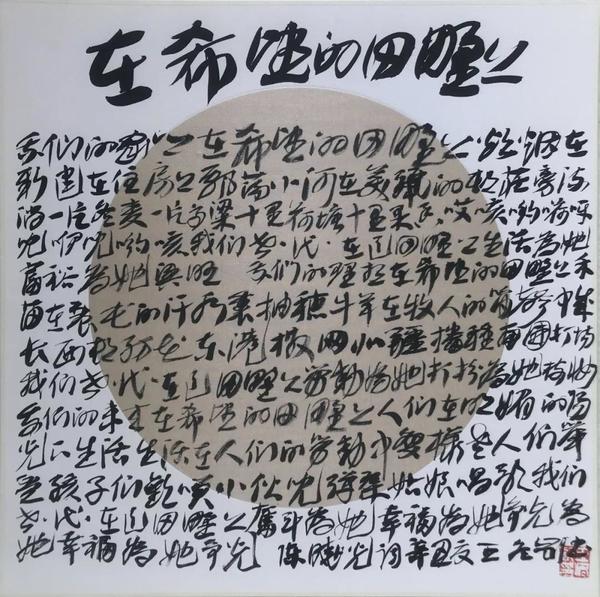 在希望的田野上
我们的家乡在希望的田野上炊烟在
新建在住房上飘荡小河在美丽的村庄旁流
淌一片冬麦一片高粱十里荷塘十里果香哎咳哟嗬呀
儿咿儿哟咳我们世·代·在这田野上生活为她
富裕为她兴旺 我们的理想在希望的田野上禾
苗在农民的汗水里抽穗牛羊在牧人的笛声中成
长西村纺花东港撒网北疆播种南国打场
我们世·代·在这田野上劳动为她打扮为她梳妆
我们的未来在希望的田野上人们在明媚的阳
光下生活生活在人们的劳动中变样老人们举
杯孩子们欢笑小伙儿弹琴姑娘唱歌我们
世·代·在这田野上奋斗为她幸福为她争光为
她幸福为她争光 陈晓光词辛丑夏王